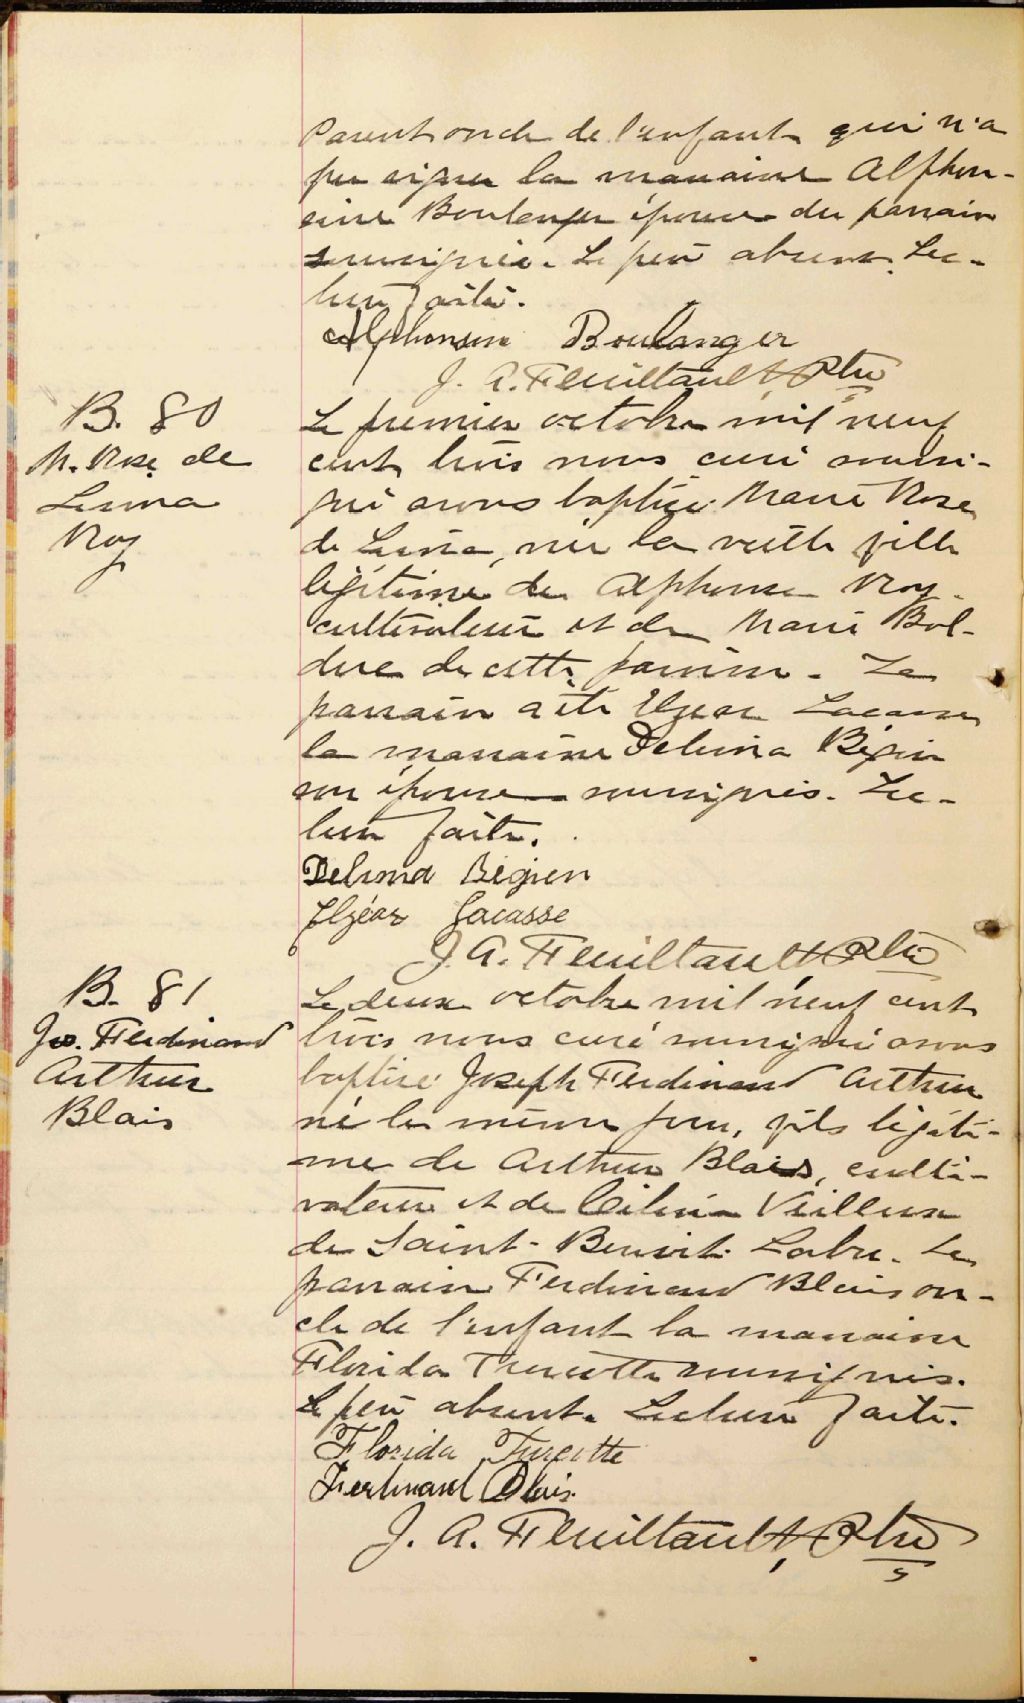 Parent oncle de l'enfant qui n'a
pu signer la marraine Alphon-
sine Boulanger épouse du parrain
soussignée. Le père absent. Lec-
ture faite.
Alphonsine Boulanger
J. A. Feuiltault, Ptre
B. 80
M. Rose de
Lima
Roy
Le premier octobre mil neuf
cent trois nous curé soussi-
gné avons baptisé Marie Rose
de Lima, née la veille fille
légitime de Alphonse Roy
cultivateur et de Marie Bol-
duc de cette paroisse. Le
parrain a été Elzear Lacasse
la marraine Delima Bégin
son épouse soussignés. Lec-
ture faite.
Delima Bégien
Elzéar Lacasse
J. A. Feuiltault, Ptre
B. 81
Jos. Ferdinand
Arthur
Blais
Le deux octobre mil neuf cent
trois nous curé soussigné avons
baptisé Joseph Ferdinand Arthur
né le même jour, fils légiti-
me de Arthur Blais, culti-
vateur et de Veilleux
de Saint-Benoit Labre. Le
parrain Ferdinand Blais on-
cle de l'enfant la marraine
Florida Turcotte soussignés.
Le père absent. Lecture faite.
Florida Turcotte
Ferdinand Blais
J. A. Feuiltault, Ptre